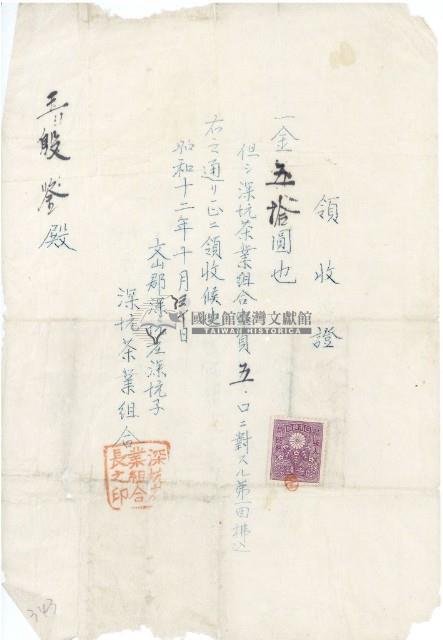 領收證
一金五拾圓也
但シ深坑茶業組合 員五口ニ對スル第一回拂込
右之通リ正ニ領收候也
昭和十二年十月 日
文山郡深坑庄深坑子
深坑茶業組合
深坑茶業組合長之印
王 殿
國史館臺灣文獻館
TAIWAN HISTORICA
343